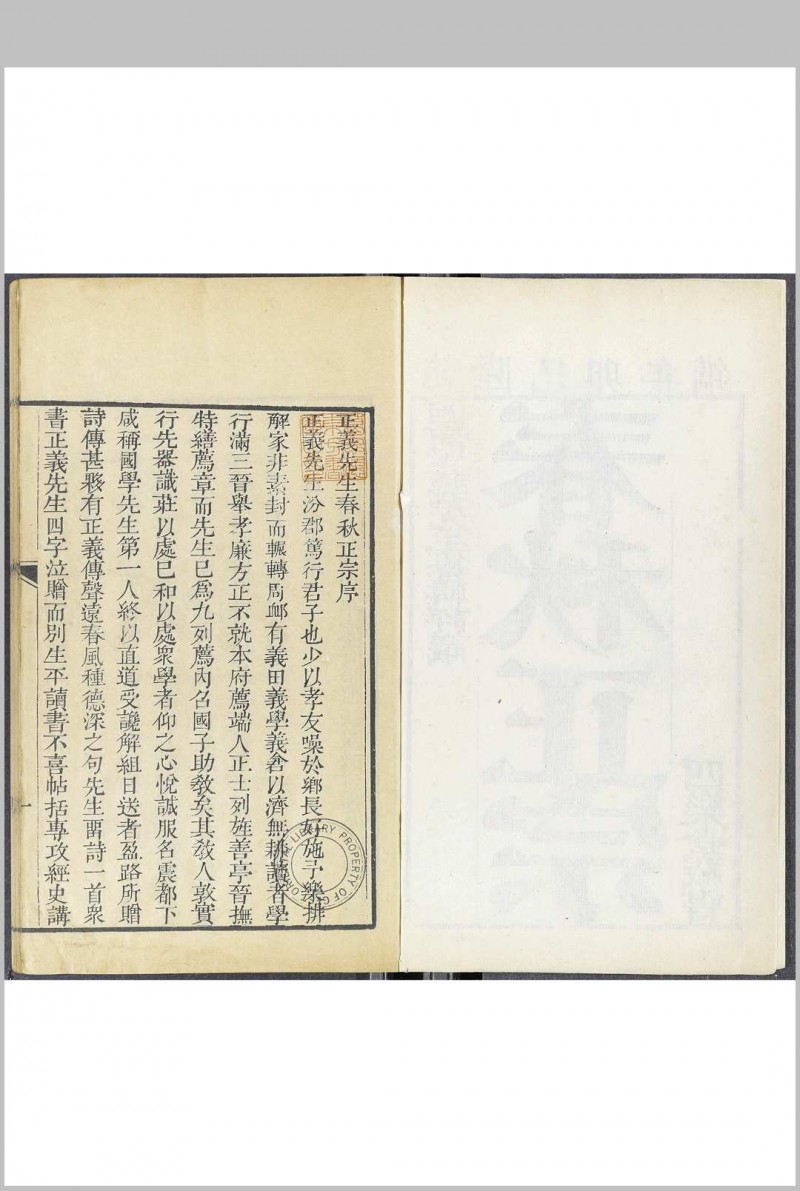 正義先生春秋正宗序
正義先生汾郡篤行君子也少以孝友噪於鄉長好施予樂排
解家非素封而輾轉周䘏有義田義學義倉以濟無耕讀者學
行滿三晉舉孝廉方正不就本府薦端人正士列旌善亭晉撫
特繕薦章而先生已爲九列薦內名國子助敎矣其敎人敦實
行先器識莊以處已和以處衆學者仰之心悅誠服名震都下
咸稱國學先生第一人終以直道受讒解組日送者盈路所贈
詩傳甚夥有正義傳聲遠春風種德深之句先生畱詩一首衆
書正義先生四字泣贈而別生平讀書不喜帖括專攻經史講
一
LIBRARY PROPERTY OF